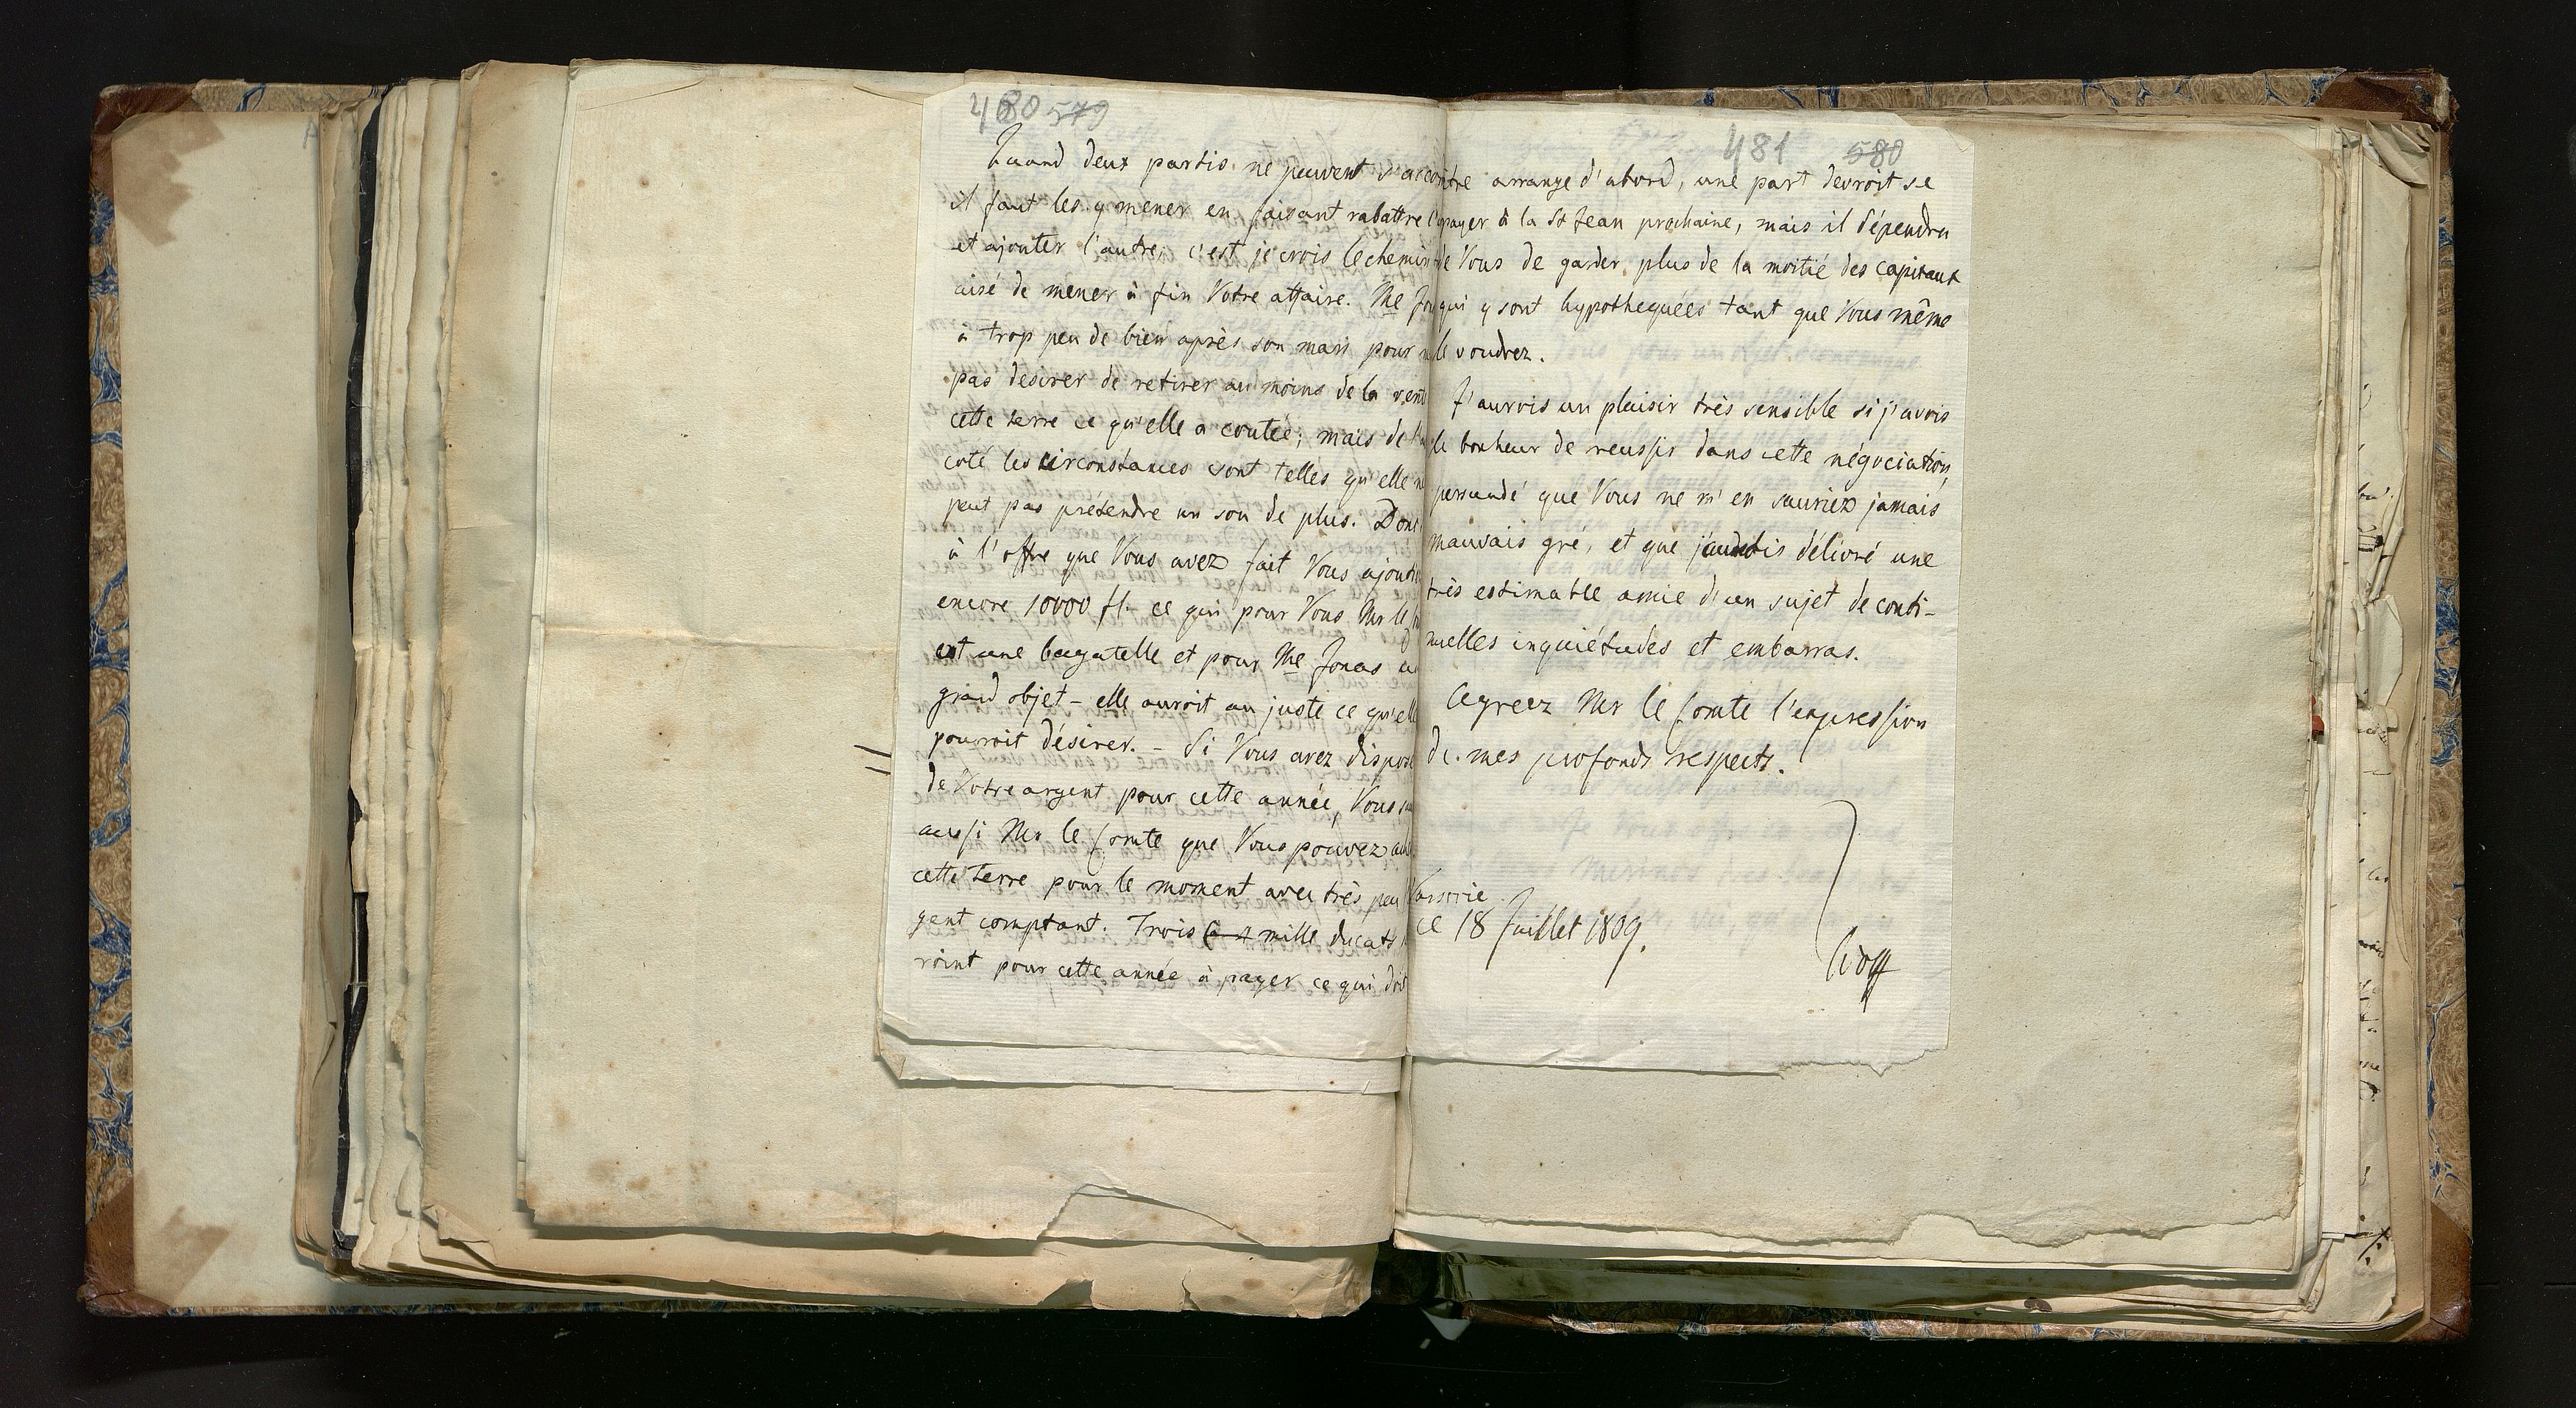 480 579
Quand deux partis ne peuvent s'accor
il faut les y mener en faisant rabattre l'
et ajouter l'autre, c'est je crois le chemin
aisé de mener à fin Votre affaire. Me Jon
à trop peu de bien après son mari pour n
pas desirer de retirer au moins de la vent
cette terre ce qu'elle a coutée; mais de l'au
coté les circonstances sont telles qu'elle ne
peut pas prétendre un sou de plus. Donc
à l'offre que Vous avez fait Vous ajoute
encore 10000 fl. ce qui pour Vous Mr le
est une bagatelle et pour Me Jonas
grand objet – elle auroit au juste ce qu'elle
pourroit désirer. – Si Vous avez disposé
de Votre argent pour cette année, Vous
aussi Mr le Comte que Vous pouvez
cette terre pour le moment avec très peu
gent comptant. Trois mille ducats
roint pour cette année à payer ce qui doit
481 580
être arrangé d'abord, une part devroit se
payer à la St Jean prochaine, mais il dépendra
de Vous de garder plus de la moitié des capitaux
qui y sont hypothequées tant que Vous même
le voudrez.
J'aurois un plaisir très sensible si j'avois
le bonheur de reussir dans cette négociation,
persuadé que Vous ne m'en sauriez jamais
mauvais gré, et que délivré une
très estimable amie d'un sujet de conti-
nuelles inquiétudes et embarras.
Agreez Mr le Comte l'expression
de mes profonds respects.
Varsovie
ce 18 Juillet 1809.